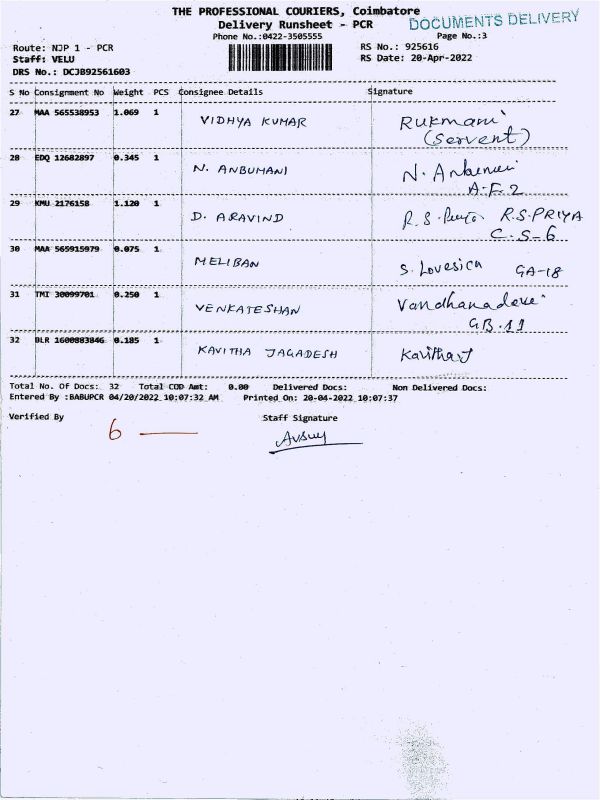 THE PROFESSIONAL COURIERS, Coimbatore
Delivery Runsheet - PCR
DOCUMENTS DELIVERY
Phone No.:0422-3505555
Page No.:3
Route: NJP 1 - PCR
RS No.: 925616
Staff: VELU
RS Date: 20-Apr-2022
DRS No.: DCJB92561603
S No Consignment No Weight PCS Consignee Details Signature
27 MAA 565538953 1.069 1 VIDHYA KUMAR Rukmani
(Servent)
28 EDQ 12682897 0.345 1 N. ANBUMANI N. Anbumani
A-F-2
29 KMU 2176158 1.120 1 D. ARAVIND R.S. Priya R.S-PRIYA
C-S-6
30 MAA 565915979 0.075 1 MELIBAN S. Lovesica GA-18
31 TMI 30099701 0.250 1 VENKATESHAN Vandhanadevi
GB-11
32 BLR 1600883846 0.185 1 KAVITHA JAGADESH KavithaJ
Total No. Of Docs: 32 Total COD Amt: 0.00 Delivered Docs: Non Delivered Docs:
Entered By :BABUPCR 04/20/2022 10:07:32 AM Printed On: 20-04-2022 10:07:37
Verified By Staff Signature
6 —